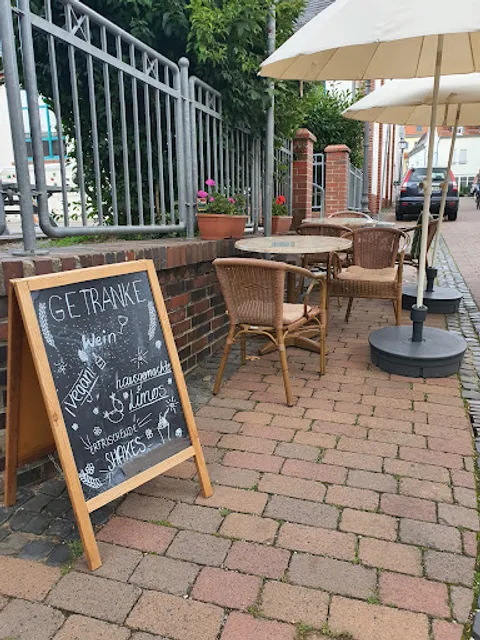 GETRÄNKE
Wein
Vegan!
hausgemachte
Limos
ERFRISCHENDE
SHAKES